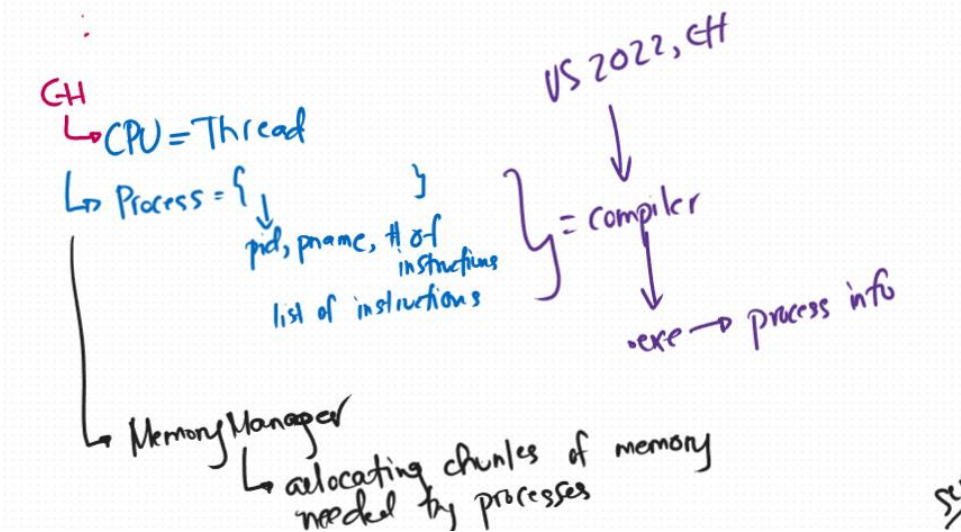 VS 2022, C#
C#
CPU = Thread
Process = { }
pid, pname, # of
instructions
list of instructions
} = compiler
.exe → process info
Memory Manager
allocating chunks of memory
needed by processes